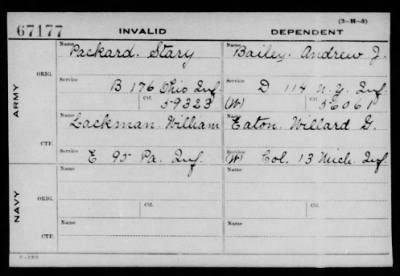 (3-M-3)
67177 INVALID DEPENDENT
ARMY
ORIG.
Name Packard. Stary
Name Bailey. Andrew J.
Service B 176 Ohio Inf.
Service D 114 N.Y. Inf.
Ctf. 59323
(W) Ctf. 56061
CTF.
Name Lackman. William
Name Eaton. Willard G.
Service E 95 Pa. Inf.
Service (W) Col. 13 Mich Inf
NAVY
ORIG.
Name
Name
Service
Service
Ctf.
Ctf.
CTF.
Name
Name
Service
Service